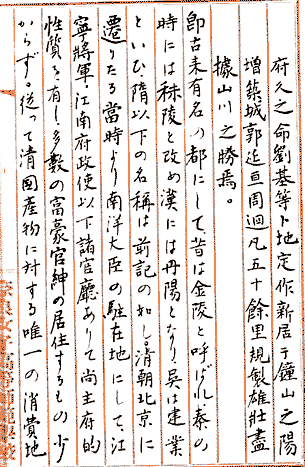 府久之命劉基等卜地定作新居于鐘山之陽
增築城郭延亘周迴凡五十餘里規製雄壯盡
據山川之勝焉。
卽古来有名ノ都にして昔は金陵と呼ばれ秦の
時には秣陵と改め漢には丹陽となり、吳は建業
といひ隋以下の名稱は前記の如し。清朝北京に
遷りたる當時より南洋大臣の駐在地にして、江
寧將軍、江南府政使以下諸官廳ありて尚主府的
性質を有し、多數の富豪官紳の居住するもの少
からず。従って清国産物に対する唯一の消費地